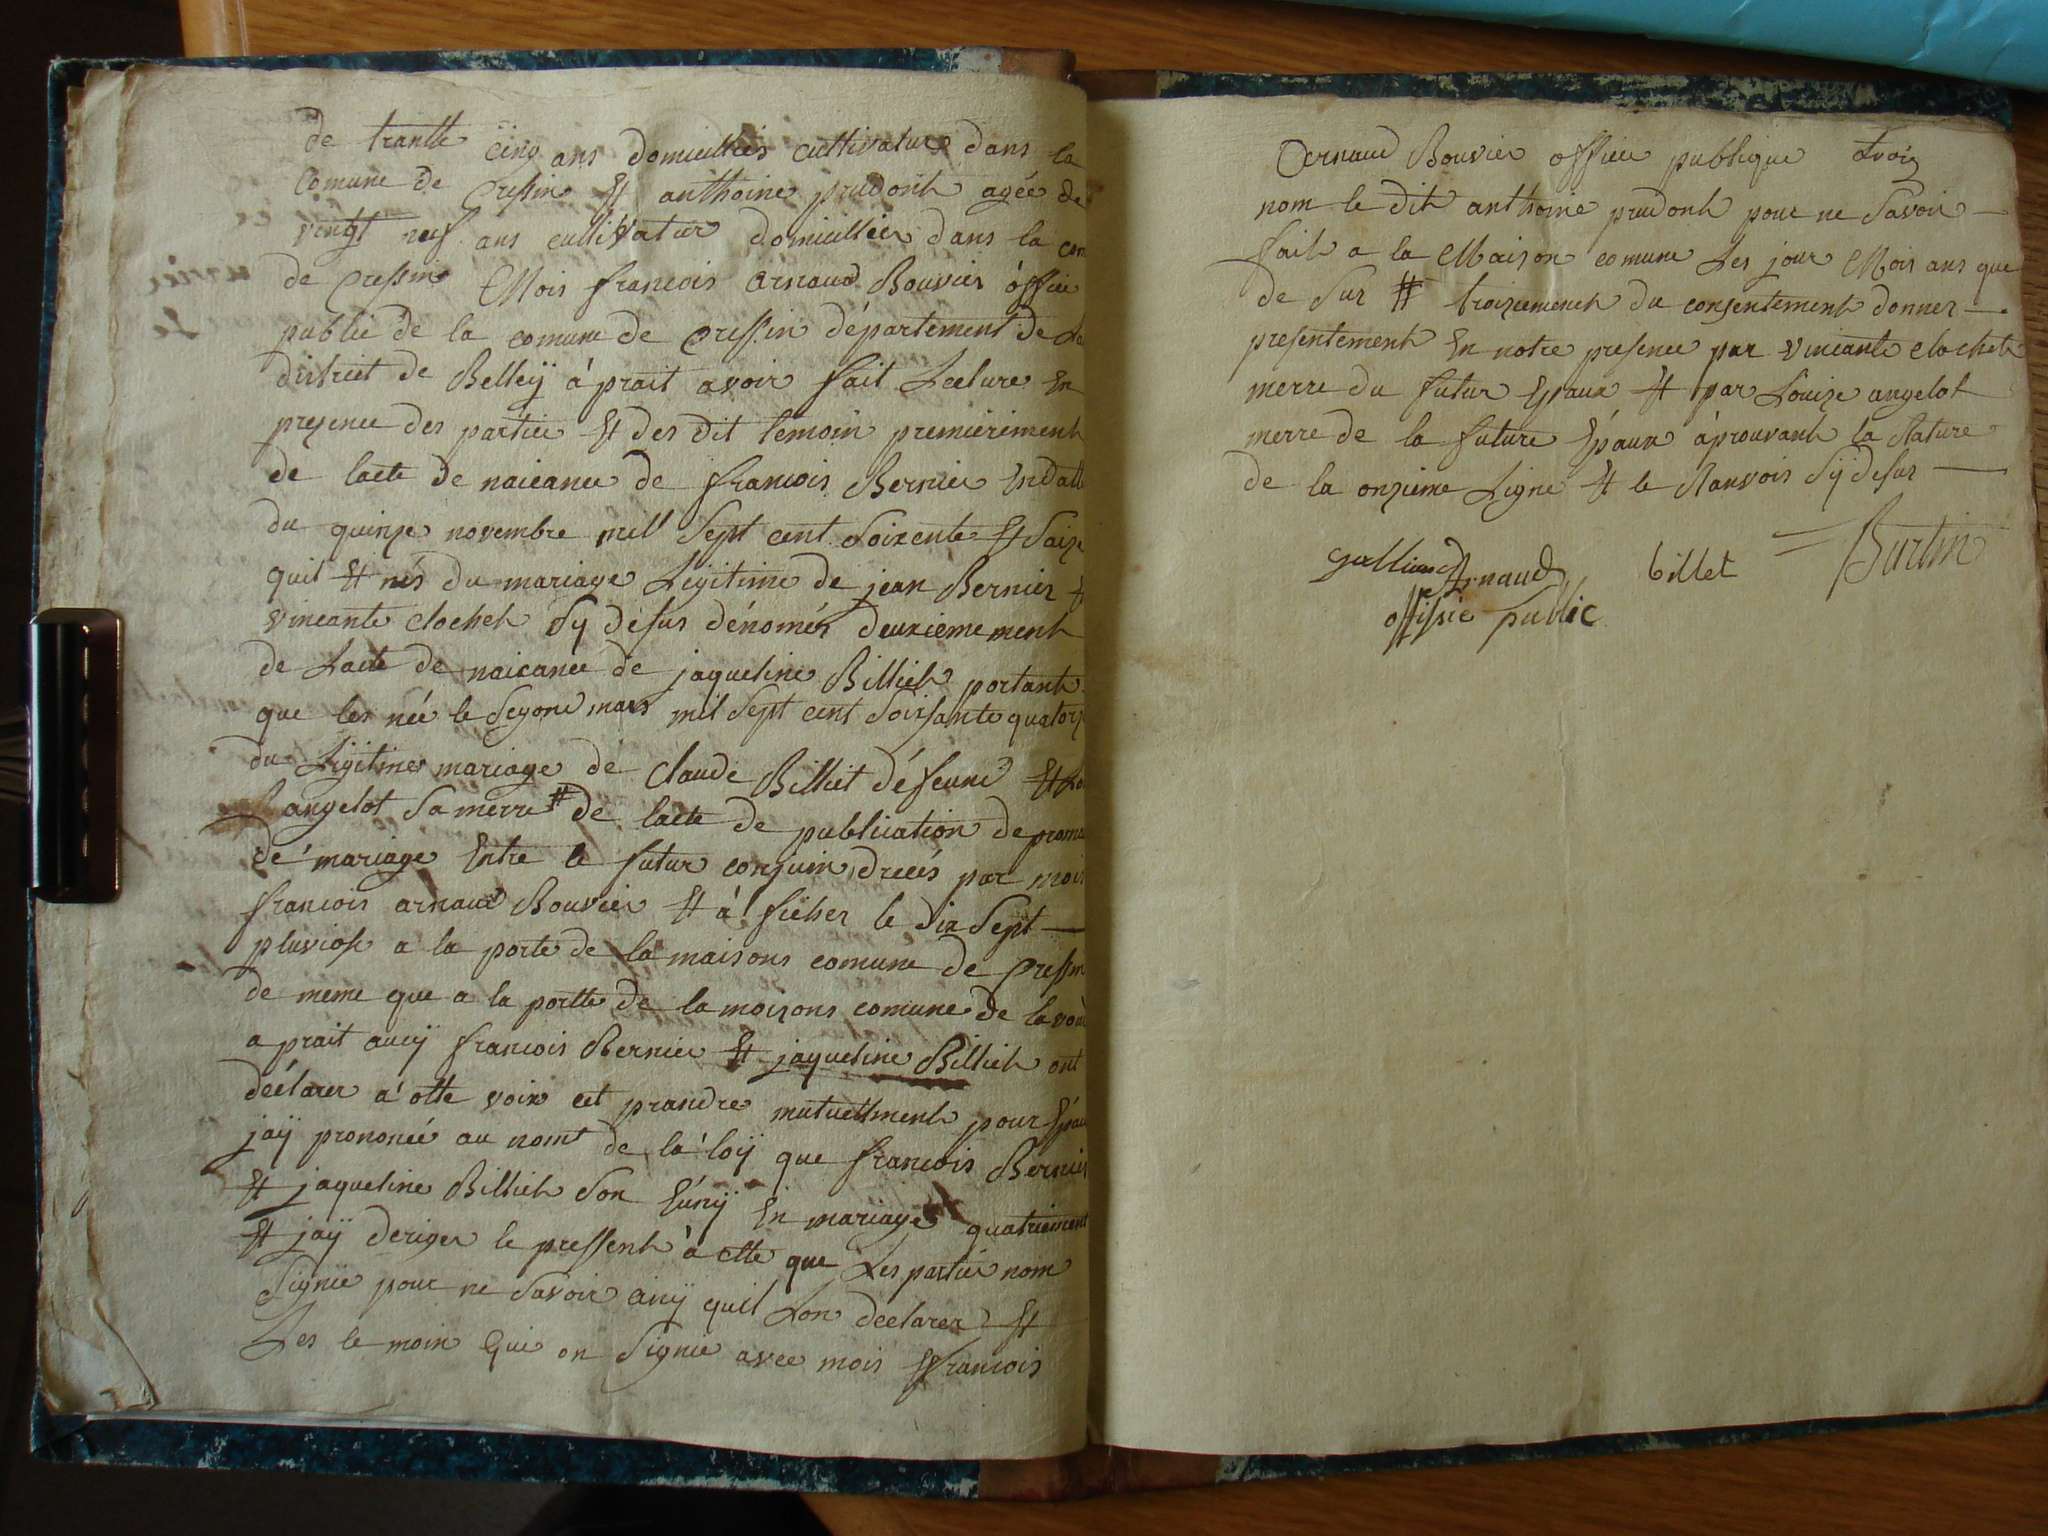 de trantte cinq ans domicilliés cultivatur dans la
Comune de Cressin Et anthoine prudont agée de
vingt neuf ans cultivatur domicillier dans la com
de Cressin Mois francois arnaud Bouvier officie
public de la comune de Cressin département de La
district de Belleÿ à prait avoir fait Lecture En
presence des partie Et des dit temoin premierement
de lacte de naicance de francois Bernier En datte
du quinze novembre mil Sept cent Soixente Et Saize
quil Et nés du mariage Legitime de jean Bernier Et
vincante clochet Sy desus dénomés deuxiemement
de Lacte de naicance de jaqueline Billiet portant
que les née le Segond mars mil Sept cent Soissante quatorz
du Ligitime mariage de Claude Billiet défeunt Et Lo
angelot Sa merre # de lacte de publication de prome
de mariage Entre le futur conjuin drecés par moi
francois arnaud Bouvier Et à ficher le dix Sept
pluviose a la porte de la maisons comune de Cressin
de meme que a la portte de la moisons comune de lavou
a prait aucÿ francois Bernier Et jaqueline Billiet ont
déclarer a otte voix cet prandre mutuellment pour Epau
jaÿ prononcé au nomt de la loÿ que francois Bernier
Et jaqueline Billiet Son Eunÿ En mariage quatriement
Et jaÿ deriger le pressent à ctte que Les partie nom
Signie pour ne Savoir ancÿ quil Lon declarer Et
Les te moin Qui on Signie avec mois francois
arnaud Bouvier officie publique
nom le dit anthoine prudont pour ne Savoir
fait a la Maison comune Les jour Mois ans que
de Sur # troiziemement du consentement donner
presentement En notre presence par vincante clochet
merre du futur Epaux Et par Louize angelot
merre de la future Epaux àprouvant la Rature
de la onzieme Ligne Et le Ranvois Sÿ desus
Arnaud billet Burtin
offisie public